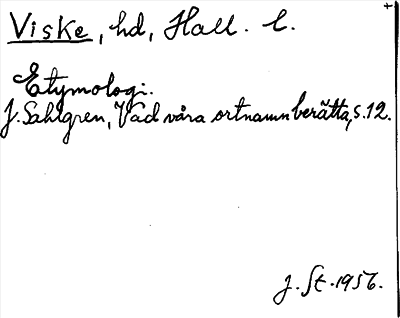 Viske, hd, Hall. l.
Etymologi.
J. Sahlgren, Vad våra ortnamn berätta, s. 12.
J. St. 1956.